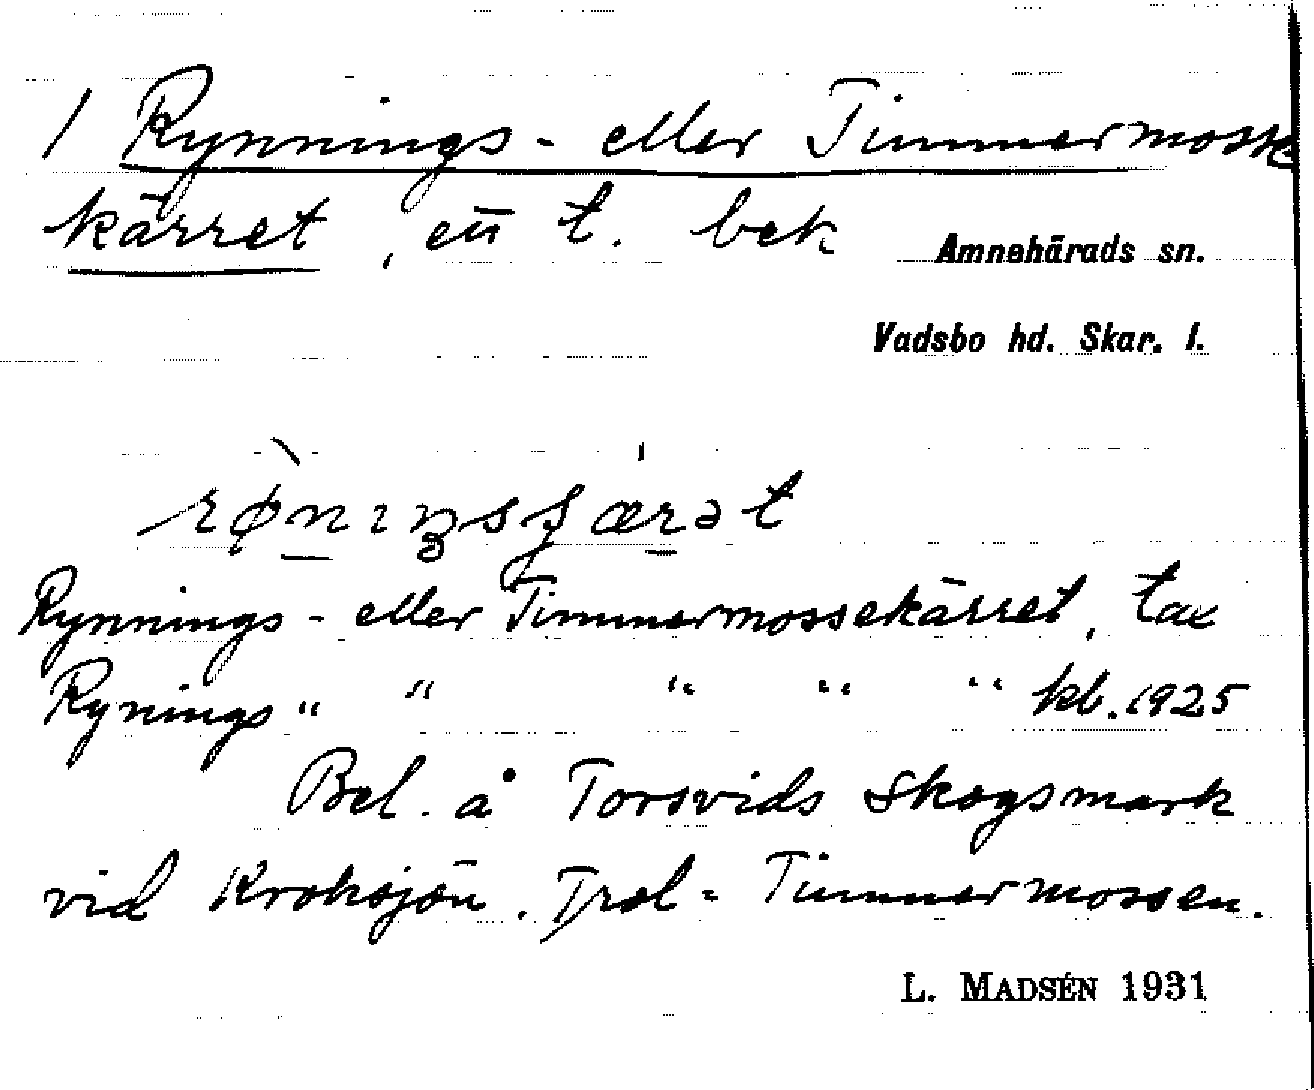 1 Rynnings- eller Timmermosse
kärret, ett t. bek
Amnehärads sn.
Vadsbo hd. Skar. l.
Rynnings- eller Timmermossekärret, tax
Rynings " " " " " kb. 1925
Bel. å Torsvids skogsmark
vid Kroksjön. Trol = Timmermossen.
L. MADSÉN 1931